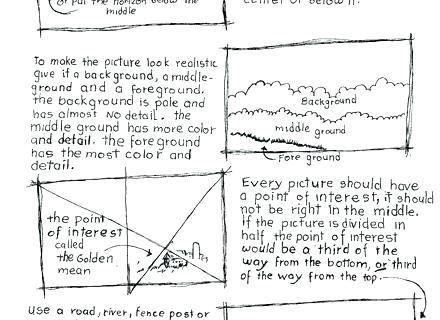 or put the horizon below the
middle
center or below it.
To make the picture look realistic
give it a background, a middle-
ground and a foreground.
the background is pale and
has almost no detail. the
middle ground has more color
and detail. the foreground
has the most color and
detail.
Background
middle ground
Fore ground
the point
of interest
called
the Golden
mean
Every picture should have
a point of interest, it should
not be right in the middle.
If the picture is divided in
half the point of interest
would be a third of the
way from the bottom, or third
of the way from the top
Use a road, river, fence post or